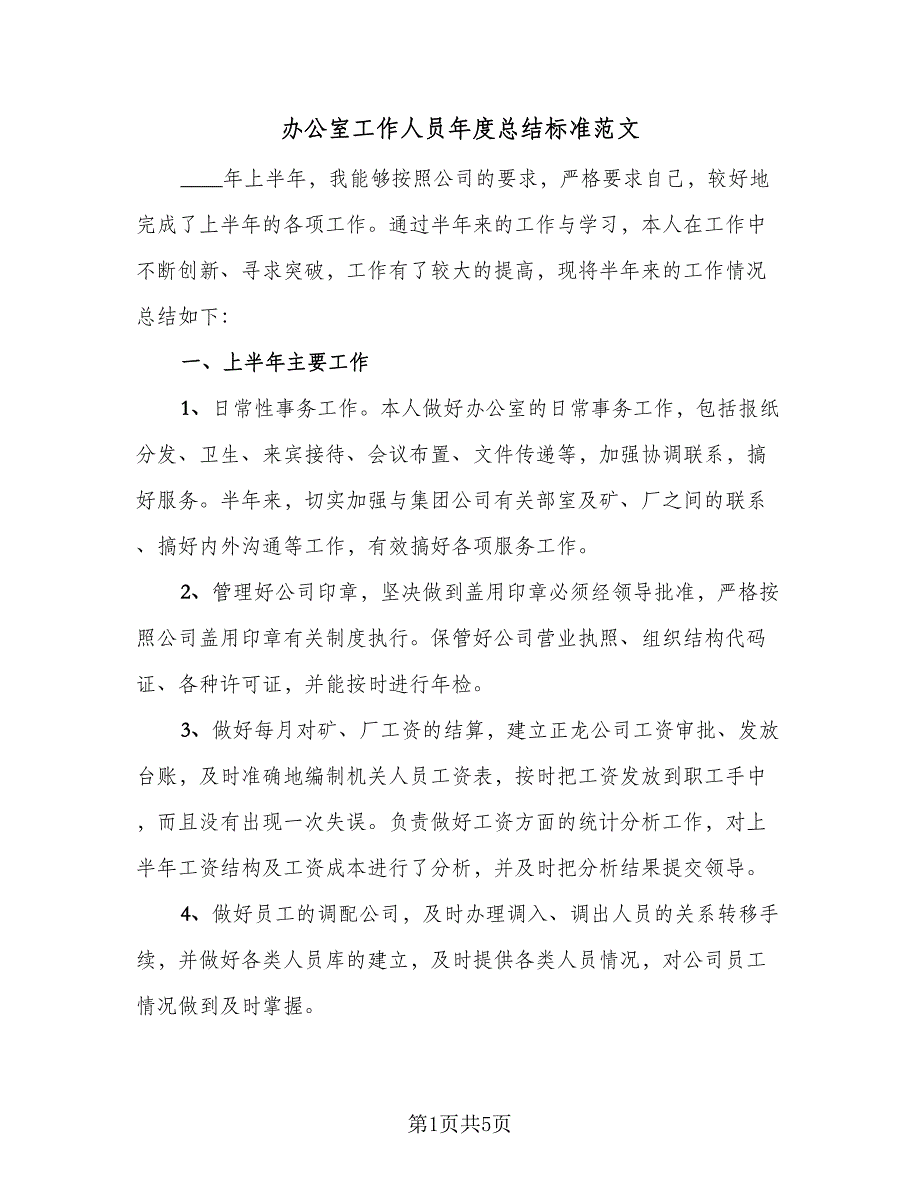 办公室工作人员年度总结标准范文
____年上半年，我能够按照公司的要求，严格要求自己，较好地
完成了上半年的各项工作。通过半年来的工作与学习，本人在工作中
不断创新、寻求突破，工作有了较大的提高，现将半年来的工作情况
总结如下：
一、上半年主要工作
1、日常性事务工作。本人做好办公室的日常事务工作，包括报纸
分发、卫生、来宾接待、会议布置、文件传递等，加强协调联系，搞
好服务。半年来，切实加强与集团公司有关部室及矿、厂之间的联系
、搞好内外沟通等工作，有效搞好各项服务工作。
2、管理好公司印章，坚决做到盖用印章必须经领导批准，严格按
照公司盖用印章有关制度执行。保管好公司营业执照、组织结构代码
证、各种许可证，并能按时进行年检。
3、做好每月对矿、厂工资的结算，建立正龙公司工资审批、发放
台账，及时准确地编制机关人员工资表，按时把工资发放到职工手中
，而且没有出现一次失误。负责做好工资方面的统计分析工作，对上
半年工资结构及工资成本进行了分析，并及时把分析结果提交领导。
4、做好员工的调配公司，及时办理调入、调出人员的关系转移手
续，并做好各类人员库的建立，及时提供各类人员情况，对公司员工
情况做到及时掌握。
第1页共5页